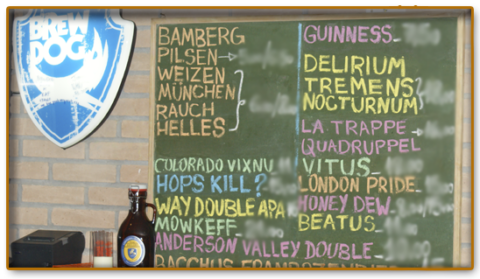 BREW
DOG
BAMBERG
PILSEN→
WEIZEN
MÜNCHEN
RAUCH
HELLES
COLORADO VIXNU
HOPS KILL?
WAY DOUBLE APA
MOWKEFF
ANDERSON VALLEY DOUBLE
GUINNESS
DELIRIUM
TREMENS
NOCTURNUM
LA TRAPPE→
QUADRUPPEL
VITUS
LONDON PRIDE
HONEY DEW
BEATUS